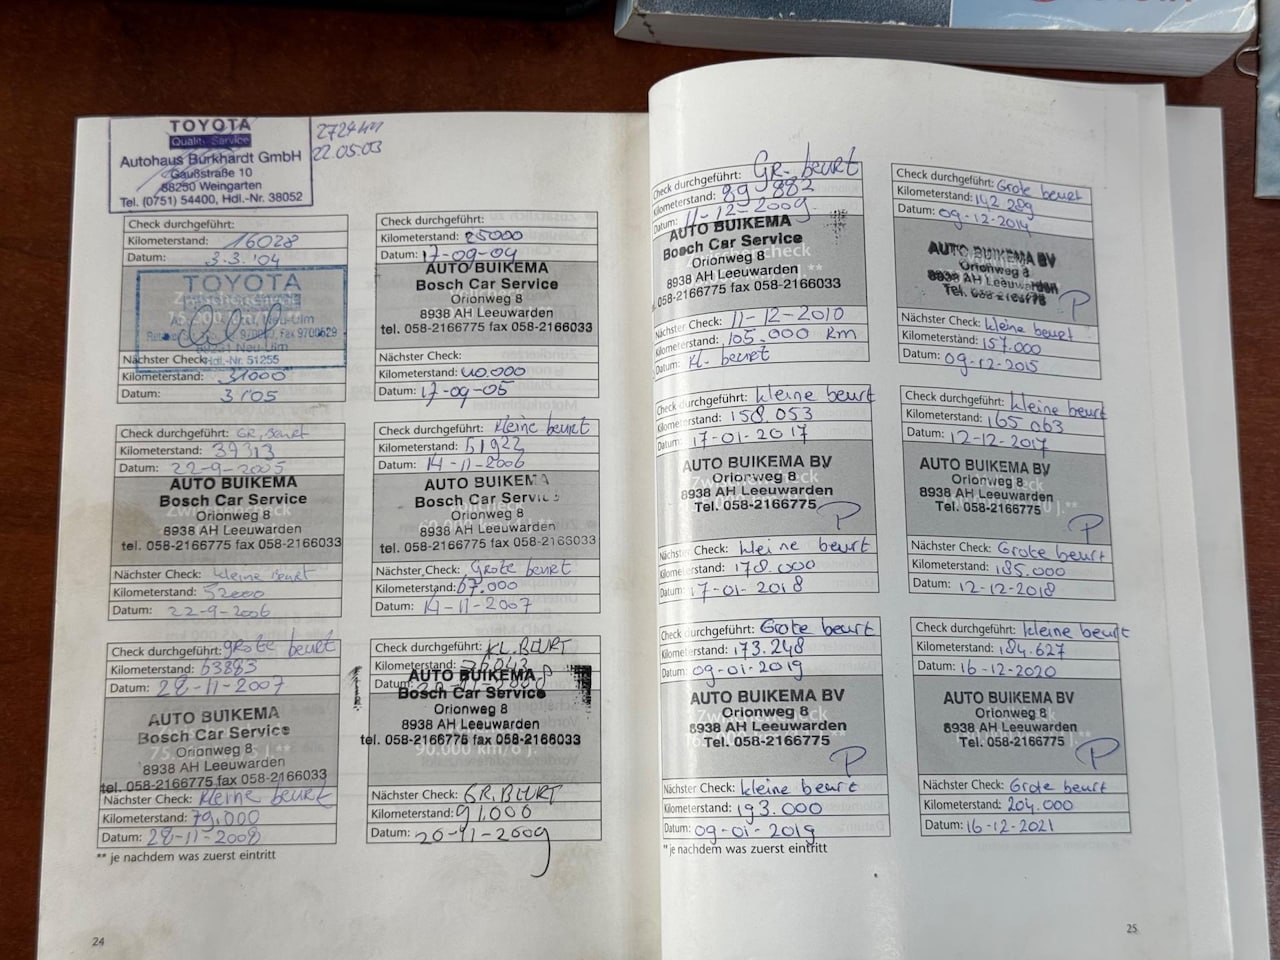 TOYOTA
Quality Service
Autohaus Burkhardt GmbH
Gaußstraße 10
88250 Weingarten
Tel. (0751) 54400, Hdl.-Nr. 38052
2724 km
22.05.03
Check durchgeführt:
Kilometerstand: 16028
Datum: 3.3.'04
TOYOTA
Neu-Ulm
Fax 9700629
Neu-Ulm
Nächster Check: Hdl.-Nr. 51255
Kilometerstand: 31000
Datum: 3/05
Check durchgeführt:
Kilometerstand: 25000
Datum: 17-09-04
AUTO BUIKEMA
Bosch Car Service
Orionweg 8
8938 AH Leeuwarden
tel. 058-2166775 fax 058-2166033
Nächster Check:
Kilometerstand: 40.000
Datum: 17-09-05
Check durchgeführt: GR. Beurt
Kilometerstand: 39313
Datum: 22-9-2005
AUTO BUIKEMA
Bosch Car Service
Orionweg 8
8938 AH Leeuwarden
tel. 058-2166775 fax 058-2166033
Nächster Check: kleine Beurt
Kilometerstand: 52000
Datum: 22-9-2006
Check durchgeführt: kleine beurt
Kilometerstand: 51922
Datum: 14-11-2006
AUTO BUIKEMA
Bosch Car Service
Orionweg 8
8938 AH Leeuwarden
tel. 058-2166775 fax 058-2166033
Nächster Check: Grote beurt
Kilometerstand: 67.000
Datum: 14-11-2007
Check durchgeführt: grote beurt
Kilometerstand: 63883
Datum: 28-11-2007
AUTO BUIKEMA
Bosch Car Service
Orionweg 8
8938 AH Leeuwarden
tel. 058-2166775 fax 058-2166033
Nächster Check: kleine beurt
Kilometerstand: 79.000
Datum: 28-11-2008
Check durchgeführt: KL. BEURT
Kilometerstand:
Datum:
AUTO BUIKEMA
Bosch Car Service
Orionweg 8
8938 AH Leeuwarden
tel. 058-2166775 fax 058-2166033
90.000 km/6 J.**
Nächster Check: GR. BEURT
Kilometerstand: 91.000
Datum: 20-11-2009
** je nachdem was zuerst eintritt
24
Check durchgeführt: Gr. beurt
Kilometerstand: 89 882
Datum: 11-12-2009
AUTO BUIKEMA
Bosch Car Service
Orionweg 8
8938 AH Leeuwarden
tel. 058-2166775 fax 058-2166033
Nächster Check: 11-12-2010
Kilometerstand: 105.000 km
Datum: Kl. beurt
Check durchgeführt: Grote beurt
Kilometerstand: 142 289
Datum: 09-12-2014
AUTO BUIKEMA BV
Orionweg 8
8938 AH Leeuwarden
Tel. 058-2166775
P
Nächster Check: kleine beurt
Kilometerstand: 157.000
Datum: 09-12-2015
Check durchgeführt: kleine beurt
Kilometerstand: 158.053
Datum: 17-01-2017
AUTO BUIKEMA BV
Orionweg 8
8938 AH Leeuwarden
Tel. 058-2166775
P
Nächster Check: kleine beurt
Kilometerstand: 178.000
Datum: 17-01-2018
Check durchgeführt: kleine beurt
Kilometerstand: 165 063
Datum: 12-12-2017
AUTO BUIKEMA BV
Orionweg 8
8938 AH Leeuwarden
Tel. 058-2166775
P
Nächster Check: Grote beurt
Kilometerstand: 185.000
Datum: 12-12-2018
Check durchgeführt: Grote beurt
Kilometerstand: 173.248
Datum: 09-01-2019
AUTO BUIKEMA BV
Orionweg 8
8938 AH Leeuwarden
Tel. 058-2166775
P
Nächster Check: kleine beurt
Kilometerstand: 193.000
Datum: 09-01-2019
Check durchgeführt: kleine beurt
Kilometerstand: 184.627
Datum: 16-12-2020
AUTO BUIKEMA BV
Orionweg 8
8938 AH Leeuwarden
Tel. 058-2166775
P
Nächster Check: Grote beurt
Kilometerstand: 204.000
Datum: 16-12-2021
** je nachdem was zuerst eintritt
25